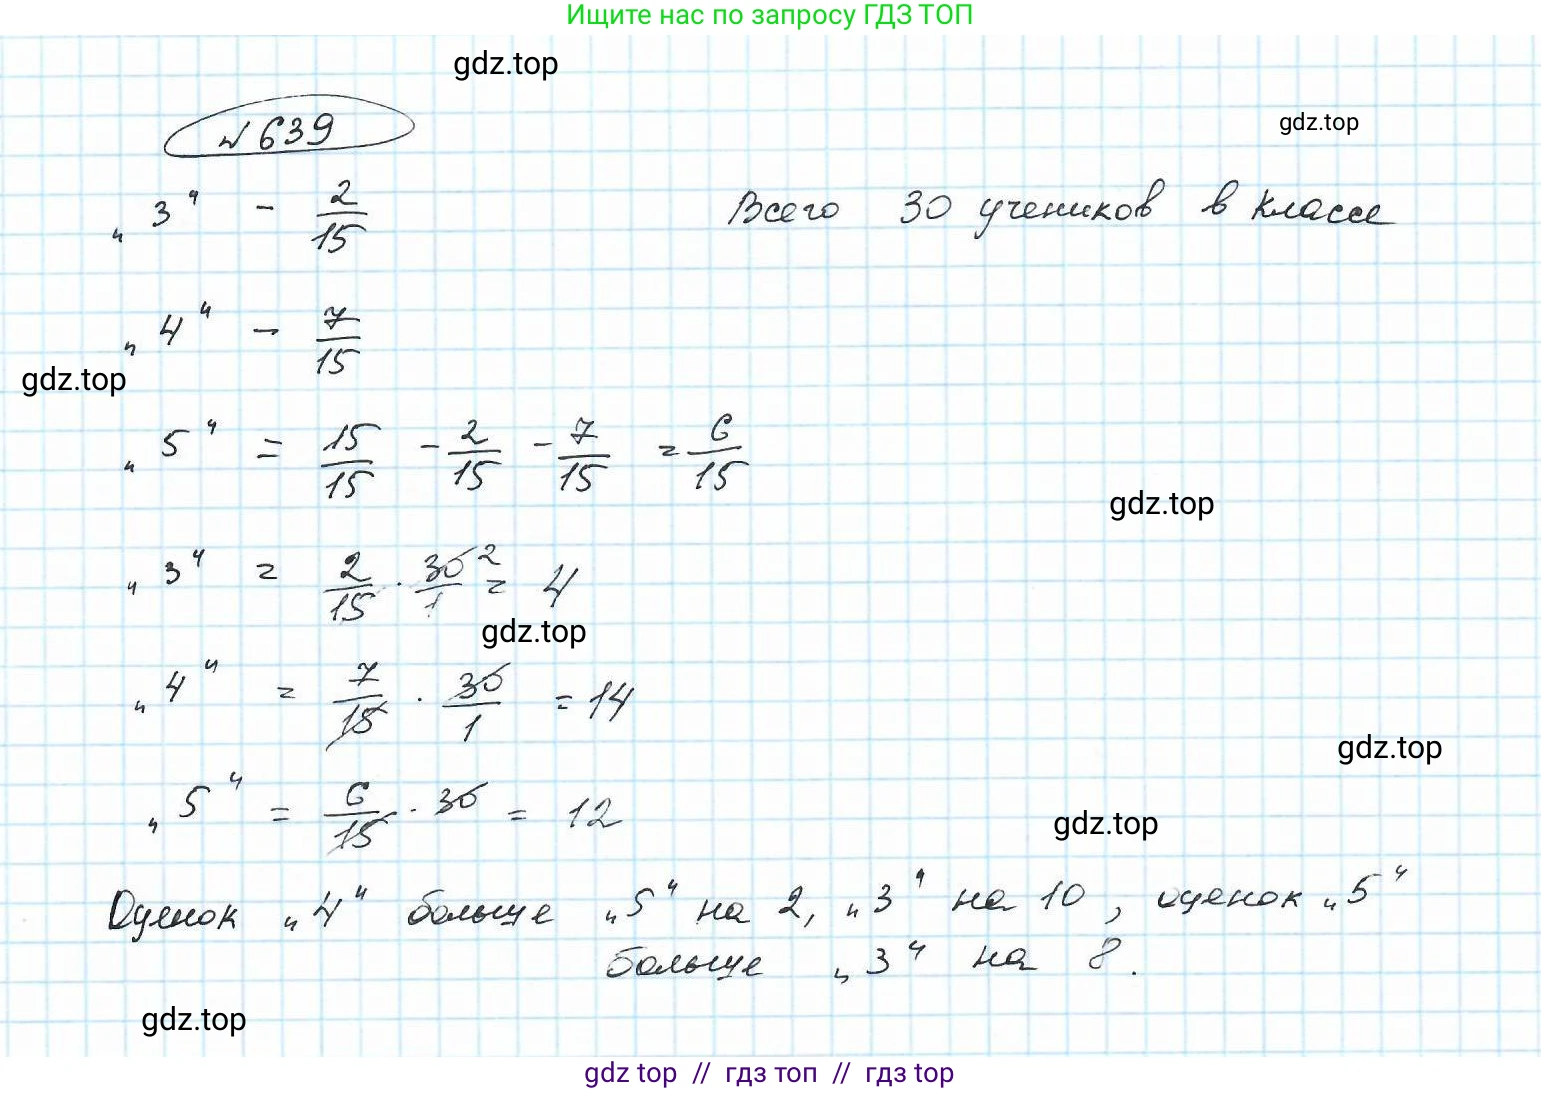 Ищите нас по запросу ГДЗ ТОП
gdz.top
gdz.top
№ 639
„3“ - 2/15
Всего 30 учеников в классе
„4“ - 7/15
gdz.top
„5“ = 15/15 - 2/15 - 7/15 = 6/15
gdz.top
„3“ = 2/15 · 30/1 2 = 4
gdz.top
„4“ = 7/15 · 30/1 = 14
gdz.top
„5“ = 6/15 · 30 = 12
gdz.top
Оценок „4“ больше „5“ на 2, „3“ на 10, оценок „5“
больше „3“ на 8.
gdz.top
gdz top // гдз топ // гдз top